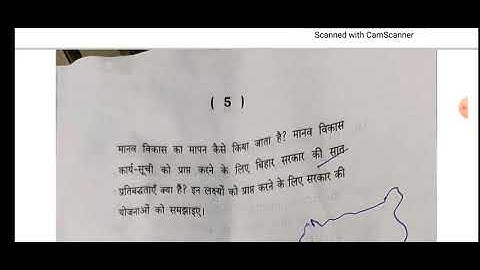 Scanned with CamScanner
( 5 )
मानव विकास का मापन कैसे किया जाता है? मानव विकास
कार्य-सूची को प्राप्त करने के लिए बिहार सरकार की सात
प्रतिबद्धताएँ क्या हैं? इन लक्ष्यों को प्राप्त करने के लिए सरकार की
योजनाओं को समझाइए।